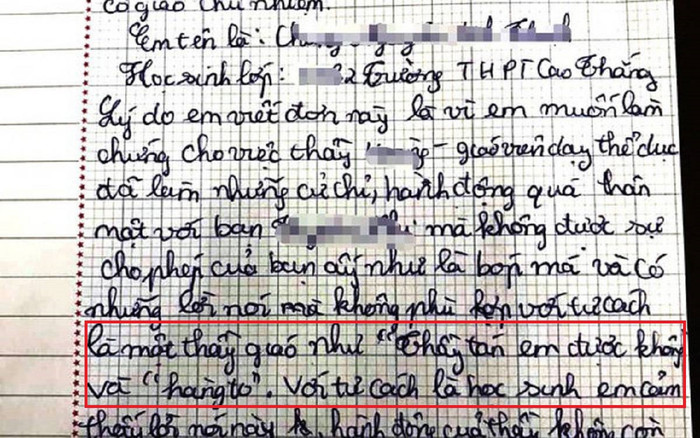 cô giáo chủ nhiệm.
Em tên là:
Học sinh lớp: 2 Trường THPT Cao Thắng
Lý do em viết đơn này là vì em muốn làm
chứng cho việc thầy - giáo viên dạy thể dục
đã làm những cử chỉ, hành động quá thân
mật với bạn mà không được sự
cho phép của bạn ấy như là bóp má và có
những lời nói mà không phù hợp với tư cách
là một thầy giáo như "thầy tán em được không
và "hàng to". Với tư cách là học sinh em cảm
thấy lời nói này k, hành động của thầy không còn